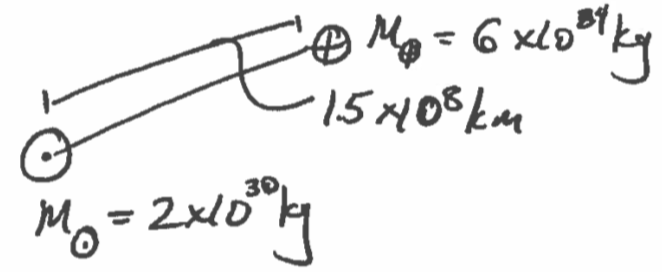 M⊕ = 6 ×10²⁴ kg
1.5 ×10⁸ km
M⊙ = 2×10³⁰ kg